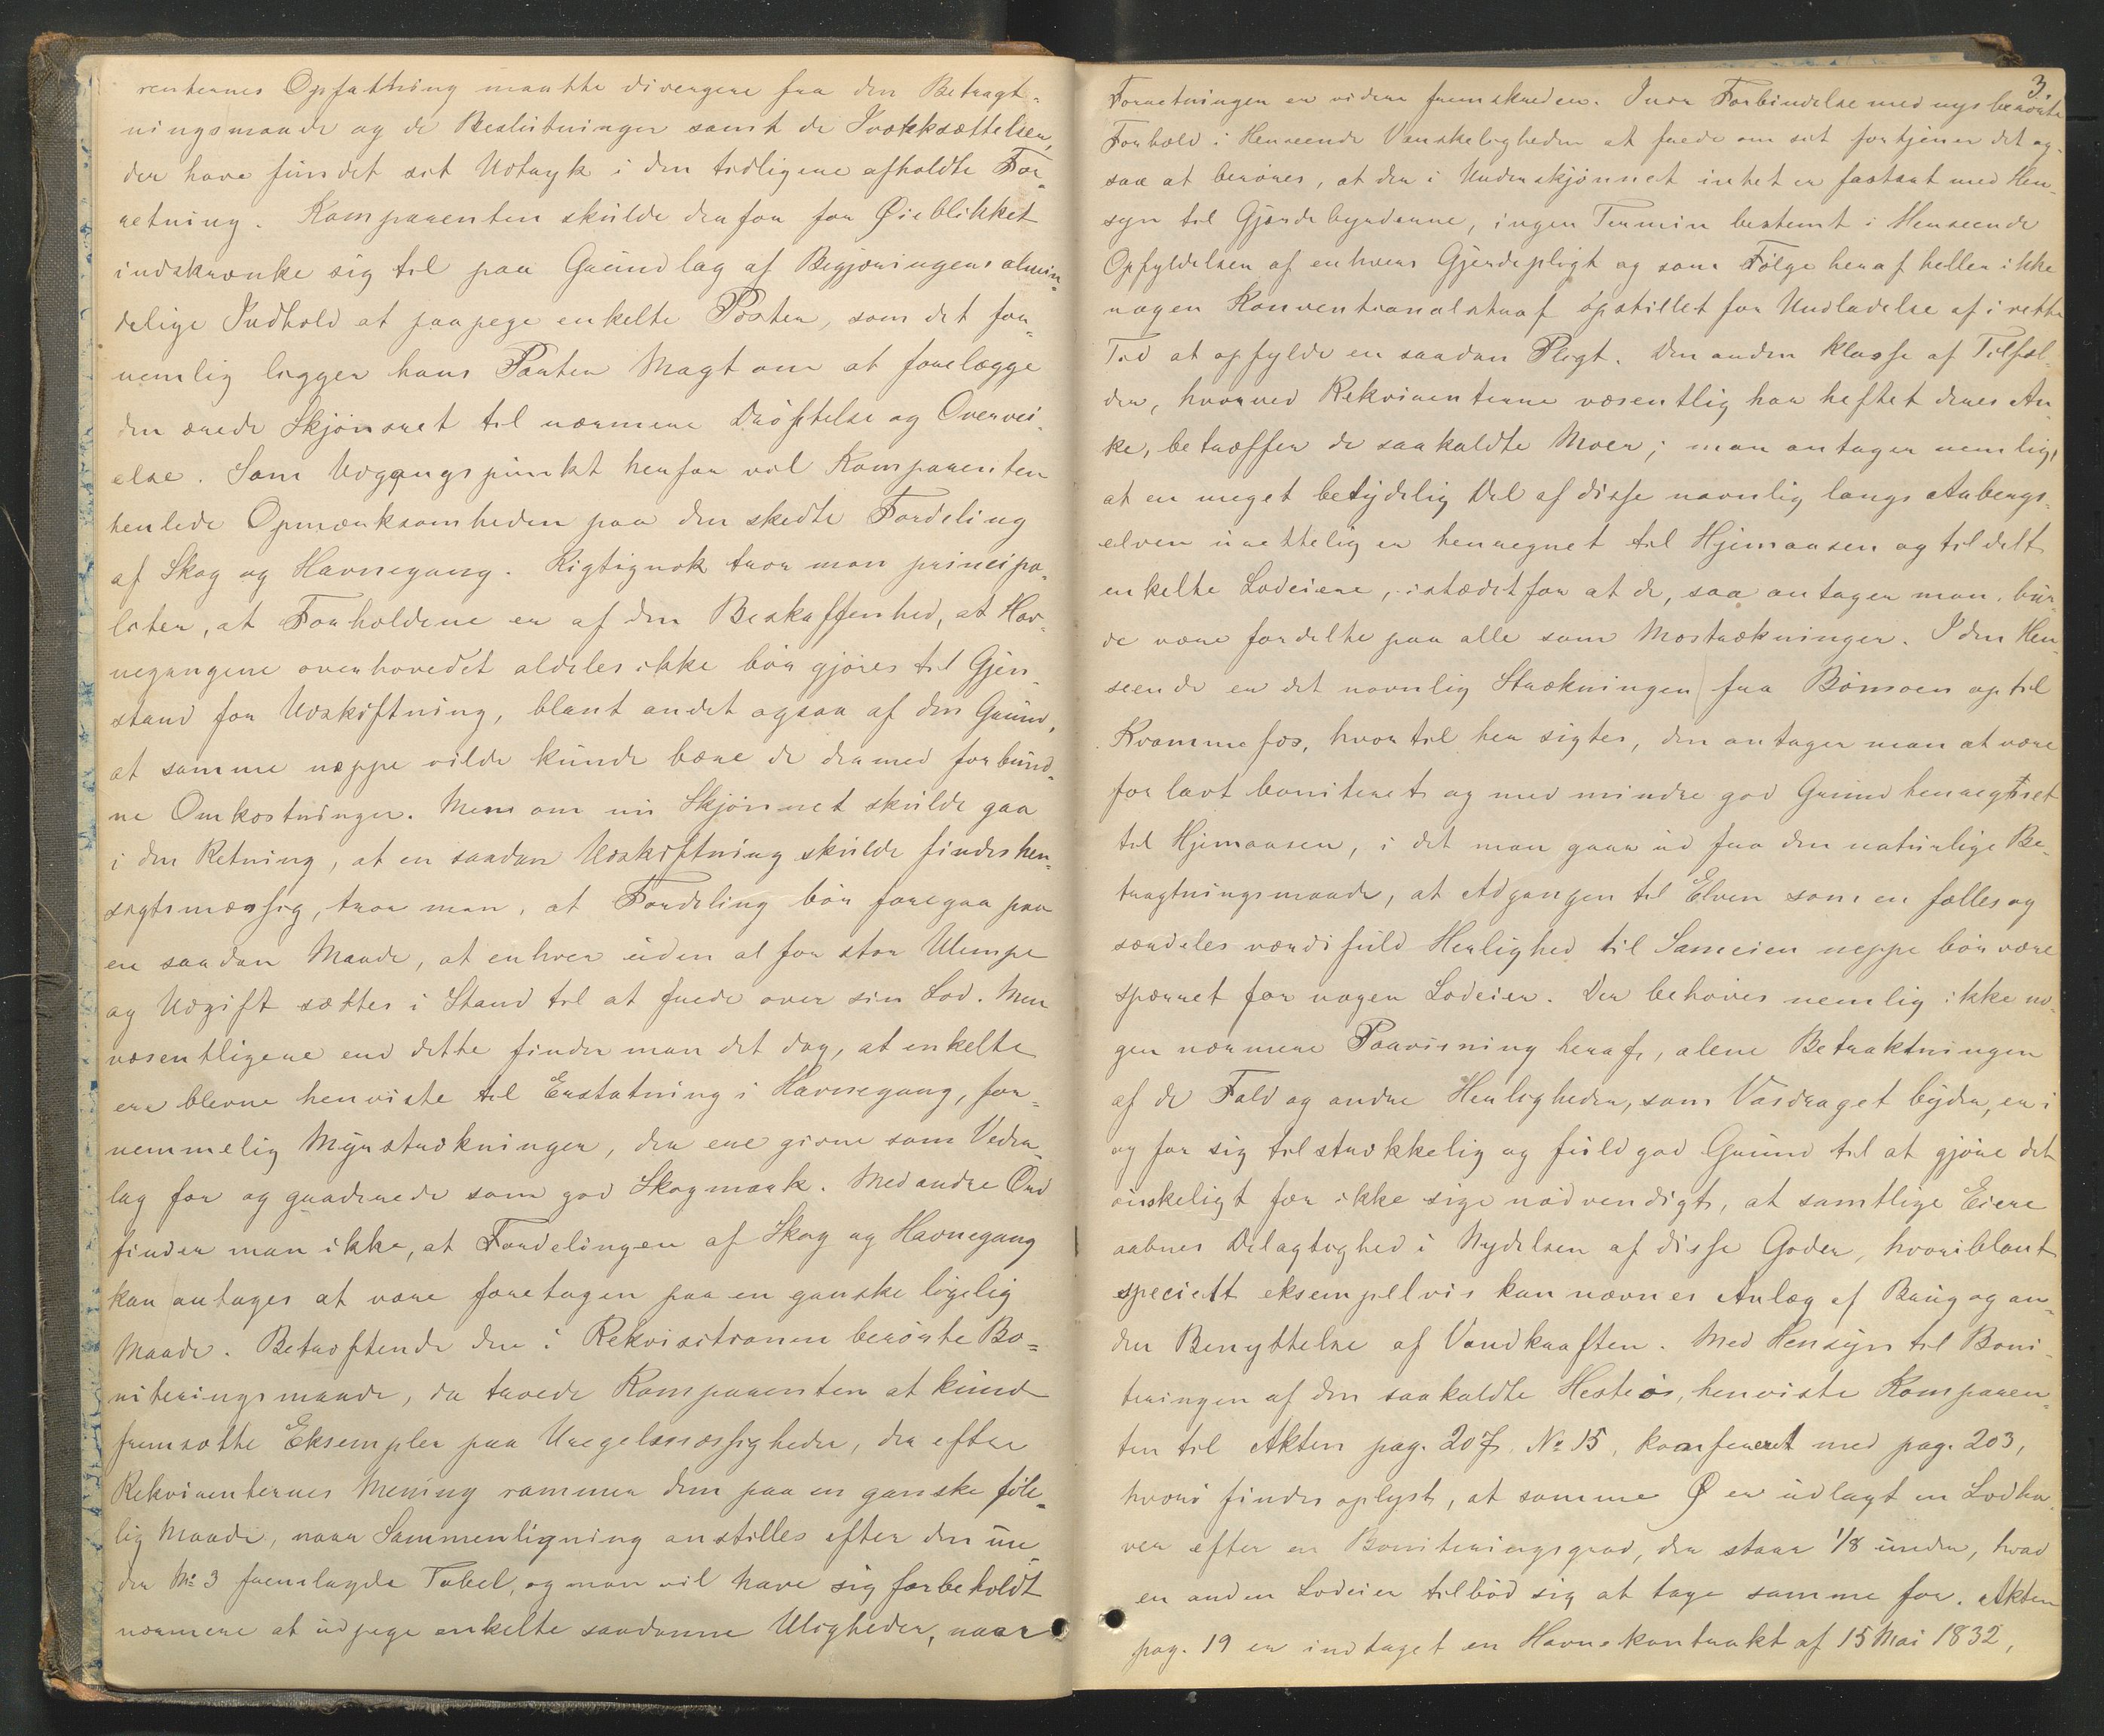 renternes Opfatning maatte divergere fra den Betragt-
ningsmaade og de Beslutninger samt de Iværksættelser,
der have fundet sit Udtryk i den tidligere afholdte For-
retning. Komparenten skulde derfor for Øieblikket
indskrænke sig til paa Grundlag af Begjæringens almin-
delige Indhold at paapege enkelte Poster, som det for-
nemlig ligger hans Parter Magt om at forelægge
den ærede Skjønsret til nærmere Drøftelse og Overvei-
else. Som Udgangspunkt herfor vil Komparenten
henlede Opmærksomheden paa den skedte Fordeling
af Skog og Havnegang. Rigtignok tror man principa-
liter, at Forholdene er af den Beskaffenhed, at Hav-
negangene overhovedet aldeles ikke bør gjøres til Gjen-
stand for Udskiftning, blant andet ogsaa af den Grund,
at samme neppe vilde kunde bære de dermed forbund-
ne Omkostninger. Mens om nu Skjønnet skulde gaa
i den Retning, at en saadan Udskiftning skulde findes hen-
sigtsmæssig, tror man, at Fordeling bør foregaa paa
en saadan Maade, at enhver uden al for stor Ulempe
og Udgift sættes i Stand til at frede over sin Lod. Men
væsentligere end dette finder man det dog, at enkelte
ere blevne henviste til Erstatning i Havnegang, for-
nemmelig Myrstrækninger, der ere givne som Veder-
lag for og graderede som god Skogmark. Med andre Ord
finder man ikke, at Fordelingen af Skog og Havnegang
kan antages at være foretagen paa en ganske ligelig
Maade. Betræffende den i Rekvisitionen berørte Bo-
niteringsmaade, da troede Komparenten at kunde
fremsætte Eksempler paa Uregelmæssigheder, der efter
Rekvirenternes Mening rammer dem paa en ganske føle-
lig Maade, naar Sammenligning anstilles efter den un-
der No 3 fremlagde Tabel, og man vil have sig forbeholdt
nærmere at udpege enkelte saadanne Uligheder, naar
3.
Forretningen er videre fremskreden. I nær Forbindelse med nys berørte
Forhold i Henseende Vanskeligheden at frede om sit fortjener det og-
saa at berøres, at der i Underskjønnet intet er fastsat med Hen-
syn til Gjærdebyrderne, ingen Termin bestemt i Henseende
Opfyldelsen af enhvers Gjerdepligt og som Følge heraf heller ikke
nogen Konventionalstraf opstillet for Undladelse af i rette
Tid at opfylde en saadan Pligt. Den anden Klasse af Tilfæl-
der, hvorved Rekvirenterne væsentlig har heftet deres An-
ke, betræffer de saakaldte Moer; man antager nemlig,
at en meget betydelig Del af disse navnlig langs Aabergs-
elven urettelig er henregnet til Hjemaasen og tildelt
enkelte Lodeiere, istædetfor at de, saa antager man, bur-
de være fordelte paa alle som Mostrækninger. I den Hen-
seende er det navnlig Strækningen fra Bømoen op til
Kvammefos, hvortil her sigtes, den antager man at være
for lavt boniteret og med mindre god Grund henregnet
til Hjemaasen, i det man gaar ud fra den naturlige Be-
tragtningsmaade, at Adgangen til Elven som en fælles og
særdeles værdifuld Herlighed til Sameien neppe bør være
spærret for nogen Lodeier. Der behøves nemlig ikke no-
gen nærmere Paavisning heraf, alene Betraktningen
af de Fald og andre Herligheder, som Vasdraget byder, er i
og for sig tilstrækkelig og fuldgod Grund til at gjøre det
ønskeligt for ikke sige nødvendigt, at samtlige Eiere
aabnes Delagtighed i Nydelsen af disse Goder, hvoriblant
specielt eksempelvis kan nævnes Anlæg af Brug og an-
den Benyttelse af Vandkraften. Med Hensyn til Boni-
teringen af den saakaldte Hesteø, henviste Komparen-
ten til Akten pag. 207 No 15, konfereret med pag. 203,
hvori findes oplyst, at samme Ø er udlagt en Lodha-
ver efter en Boniteringsgrad, der staar 1/8 under, hvad
en anden Lodeier tilbød sig at tage samme for. Akten
pag. 19 er indtaget en Havnekontrakt af 15 Mai 1832,